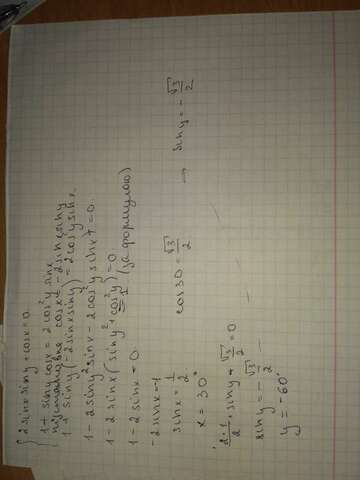 { 2 sinx siny + cosx = 0
1 + siny cosx = 2 cos²y sinx
підстановка cosx = -2 sinx siny
1 + siny (-2 sinx siny) = 2 cos²y sinx
1 - 2 siny² sinx - 2 cos²y sinx = 0
1 - 2 sinx (siny² + cos²y) = 0
= 1 (за формулою)
1 - 2 sinx = 0
-2 sinx = -1
sinx = 1/2
x = 30°
cos30 = √3/2 → siny = -√3/2
2·1/2 · siny + √3/2 = 0
siny = -√3/2
y = -60°